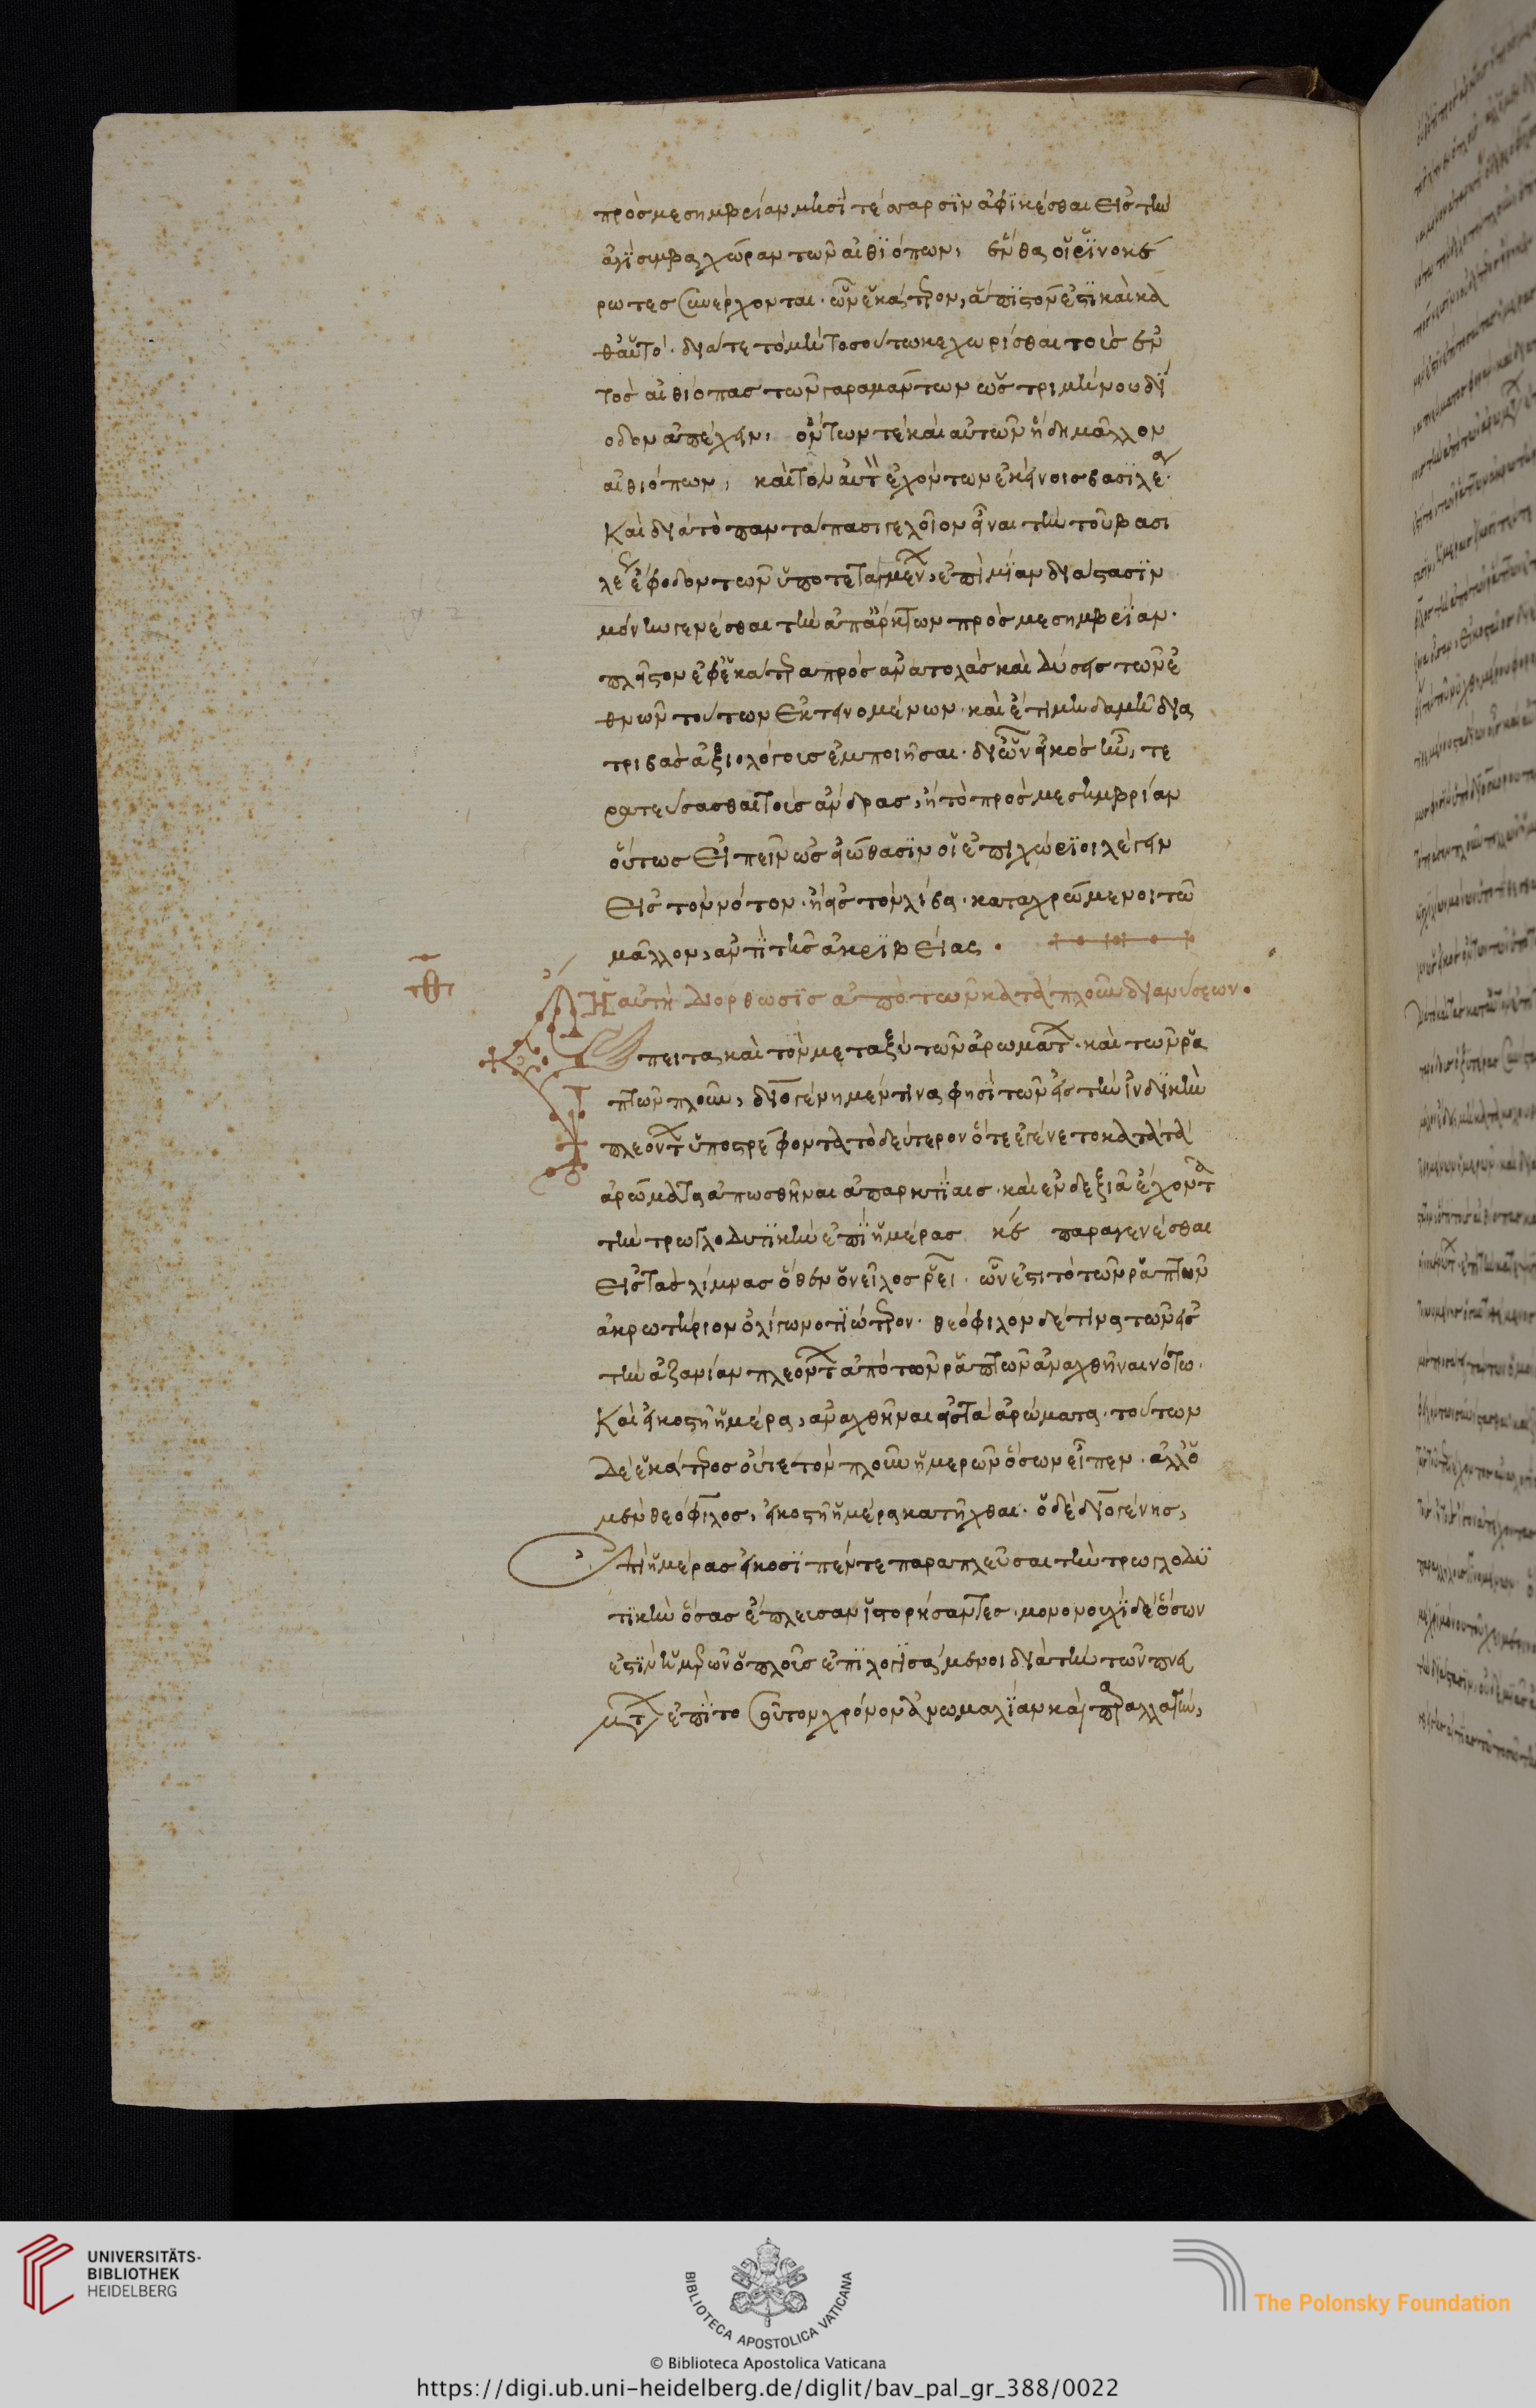 πρὸς μεσημβρίαν μησὶ τέσσαρσιν ἀφικέσθαι εἰς τὴν
ἀγίσυμβα χώραν τῶν αἰθιόπων, ἔνθα οἱ ῥινοκέ
ρωτες συνέρχονται. ὧν ἑκάτερον, ἄπιστόν ἐστι καὶ κα
θαὑτό. διά τε τὸ μὴ τοσούτω κεχωρίσθαι τοὺς ἐν
τὸς αἰθίοπας τῶν γαραμάντων ὡς τριμήνου δι
οδον ἀπέχειν, ὄντων τὲ καὶ αὐτῶν ἤδη μᾶλλον
αἰθιόπων, καὶ τὸν αὐτὸν ἐχόντων ἐκείνοις βασιλέα.
Καὶ διὰ τὸ παντάπασι γελοῖον εἶναι τὴν τοῦ βασι
λέως ἔφοδον τῶν ὑποτεταγμένων, ἐπὶ μίαν διάστασιν
μόνην γενέσθαι τὴν ἀπάρκτων πρὸς μεσημβρίαν.
πλεῖστον ἐφ' ἑκάτερα πρὸς ἀνατολὰς καὶ δύσεις τῶν ἐ
θνῶν τούτων ἐκτεινομένων. καὶ ἔτι μηδαμῆ δια
τριβὰς ἀξιολόγους ἐμποιῆσαι. διῶν εἰκὸς ἦν, τε
ρατεύσασθαι τοὺς ἄνδρας, ἢ τὸ πρὸς μεσημβρίαν
οὕτως εἰπεῖν ὡς εἰώθασιν οἱ ἐπιχώριοι λέγειν
εἰς τὸν νότον. ἢ εἰς τὸν λίβα. καταχρώμενοι τῶ
μᾶλλον, ἀντὶ τῆς ἀκριβείας.
θ Ἡ αὐτὴ διόρθωσις ἀπὸ τῶν κατὰ πλοῦν διανύσεων.
Ἔπειτα καὶ τὸν μεταξὺ τῶν ἀρωμάτων. καὶ τῶν ῥα
πτῶν πλοῦν, διογένη μέν τινα φησὶ τῶν εἰς τὴν ἰνδικὴν
πλεόντων ὑποστρέφοντα τὸ δεύτερον ὅτε ἐγένετο κατὰ τὰ
ἀρώματα ἀπωσθῆναι ἀπαρκτίαις. καὶ ἐν δεξιᾶ ἔχοντα
τὴν τρωγλοδυτικὴν ἐπὶ ἡμέρας κέ παραγενέσθαι
εἰς τὰς λίμνας ὅθεν ὁ νεῖλος ῥεῖ. ὧν ἐστι τὸ τῶν ῥαπτῶν
ἀκρωτήριον ὀλίγω νοτιώτερον. θεόφιλον δέ τινα τῶν εἰς
τὴν ἀζανίαν πλεόντων ἀπὸ τῶν ῥαπτῶν ἀναχθῆναι νότω.
Καὶ εἰκοστῆ ἡμέρα, ἀναχθῆναι εἰς τὰ ἀρώματα. τούτων
δὲ ἑκάτερος οὔτε τὸν πλοῦν ἡμερῶν ὅσων εἶπεν. ἀλλ' ὁ
μὲν θεόφιλος, εἰκοστῆ ἡμέρα κατῆχθαι. ὁ δὲ διογένης,
ἐπὶ ἡμέρας εἴκοσι πέντε παραπλεῦσαι τὴν τρωγλοδυ
τικὴν ὅσας ἔπλευσαν ἱστορήσαντες. μονονουχὶ δὲ ὅσων
ἐστὶν ἡμερῶν ὁ πλοῦς ἐπιλογισάμενοι διὰ τὴν τῶν πνευ
μάτων ἐπὶ τοσοῦτον χρόνον ἀνωμαλίαν καὶ παραλλαγήν,
UNIVERSITÄTS-
BIBLIOTHEK
HEIDELBERG
BIBLIOTECA APOSTOLICA VATICANA
The Polonsky Foundation
© Biblioteca Apostolica Vaticana
https://digi.ub.uni-heidelberg.de/diglit/bav_pal_gr_388/0022